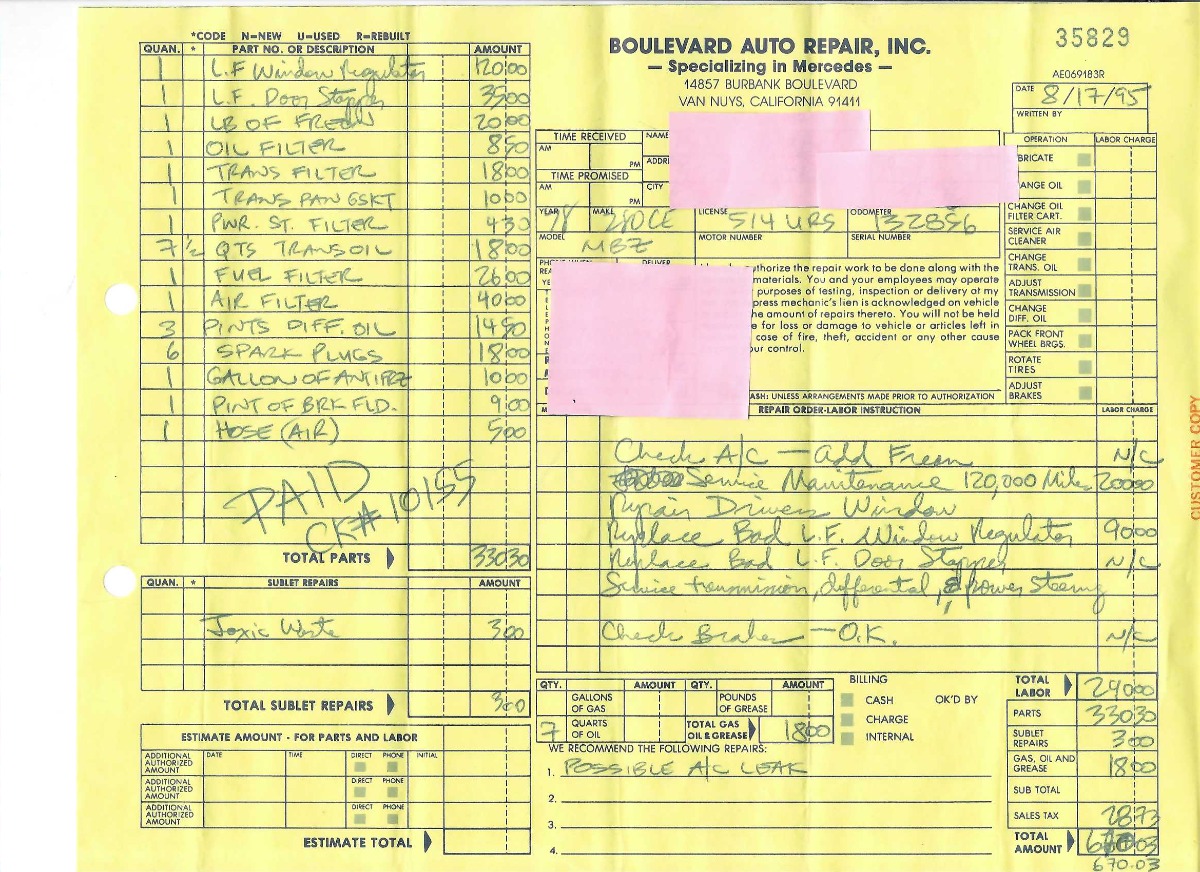 *CODE N=NEW U=USED R=REBUILT
QUAN. * PART NO. OR DESCRIPTION AMOUNT
1 L.F Window Regulator 120 00
1 L.F. Door Stopper 35 00
1 LB OF FREON 20 00
1 OIL FILTER 8 50
1 TRANS FILTER 18 00
1 TRANS PAN GSKT 10 00
1 PWR. ST. FILTER 4 30
7 1/2 QTS TRANS OIL 18 00
1 FUEL FILTER 26 00
1 AIR FILTER 40 00
3 PINTS DIFF. OIL 14 50
6 SPARK PLUGS 18 00
1 GALLON OF ANTIFRZ 10 00
1 PINT OF BRK FLD. 9 00
1 HOSE (AIR) 5 00
PAID
CK# 10155
TOTAL PARTS 330 30
QUAN. * SUBLET REPAIRS AMOUNT
Toxic Waste 3 00
TOTAL SUBLET REPAIRS 3 00
ESTIMATE AMOUNT - FOR PARTS AND LABOR
ADDITIONAL AUTHORIZED AMOUNT DATE TIME DIRECT PHONE INITIAL
ADDITIONAL AUTHORIZED AMOUNT DIRECT PHONE
ADDITIONAL AUTHORIZED AMOUNT DIRECT PHONE
ESTIMATE TOTAL
BOULEVARD AUTO REPAIR, INC.
— Specializing in Mercedes —
14857 BURBANK BOULEVARD
VAN NUYS, CALIFORNIA 91411
35829
AE069183R
DATE 8/17/95
WRITTEN BY
TIME RECEIVED NAME
AM PM ADDR
TIME PROMISED
AM PM CITY
YEAR 78 MAKE 280CE LICENSE 514 URS ODOMETER 132856
MODEL MBZ MOTOR NUMBER SERIAL NUMBER
authorize the repair work to be done along with the
materials. You and your employees may operate
purposes of testing, inspection or delivery at my
press mechanic's lien is acknowledged on vehicle
he amount of repairs thereto. You will not be held
e for loss or damage to vehicle or articles left in
case of fire, theft, accident or any other cause
our control.
ASH: UNLESS ARRANGEMENTS MADE PRIOR TO AUTHORIZATION
OPERATION LABOR CHARGE
BRICATE
ANGE OIL
CHANGE OIL FILTER CART.
SERVICE AIR CLEANER
CHANGE TRANS. OIL
ADJUST TRANSMISSION
CHANGE DIFF. OIL
PACK FRONT WHEEL BRGS.
ROTATE TIRES
ADJUST BRAKES
REPAIR ORDER-LABOR INSTRUCTION LABOR CHARGE
Check A/C — Add Freon N/C
Service Maintenance 120,000 Miles 200 00
Repair Drivers Window
Replace Bad L.F. Window Regulator 90 00
Replace Bad L.F. Door Stopper N/C
Service transmission, differential, & power steering
Check Brakes — O.K. N/C
QTY. AMOUNT QTY. AMOUNT
GALLONS OF GAS POUNDS OF GREASE
7 QUARTS OF OIL TOTAL GAS OIL & GREASE 18 00
BILLING
CASH OK'D BY
CHARGE
INTERNAL
WE RECOMMEND THE FOLLOWING REPAIRS:
1. POSSIBLE A/C LEAK
2.
3.
4.
TOTAL LABOR 290 00
PARTS 330 30
SUBLET REPAIRS 3 00
GAS, OIL AND GREASE 18 00
SUB TOTAL
SALES TAX 28 73
TOTAL AMOUNT
670.03
CUSTOMER COPY